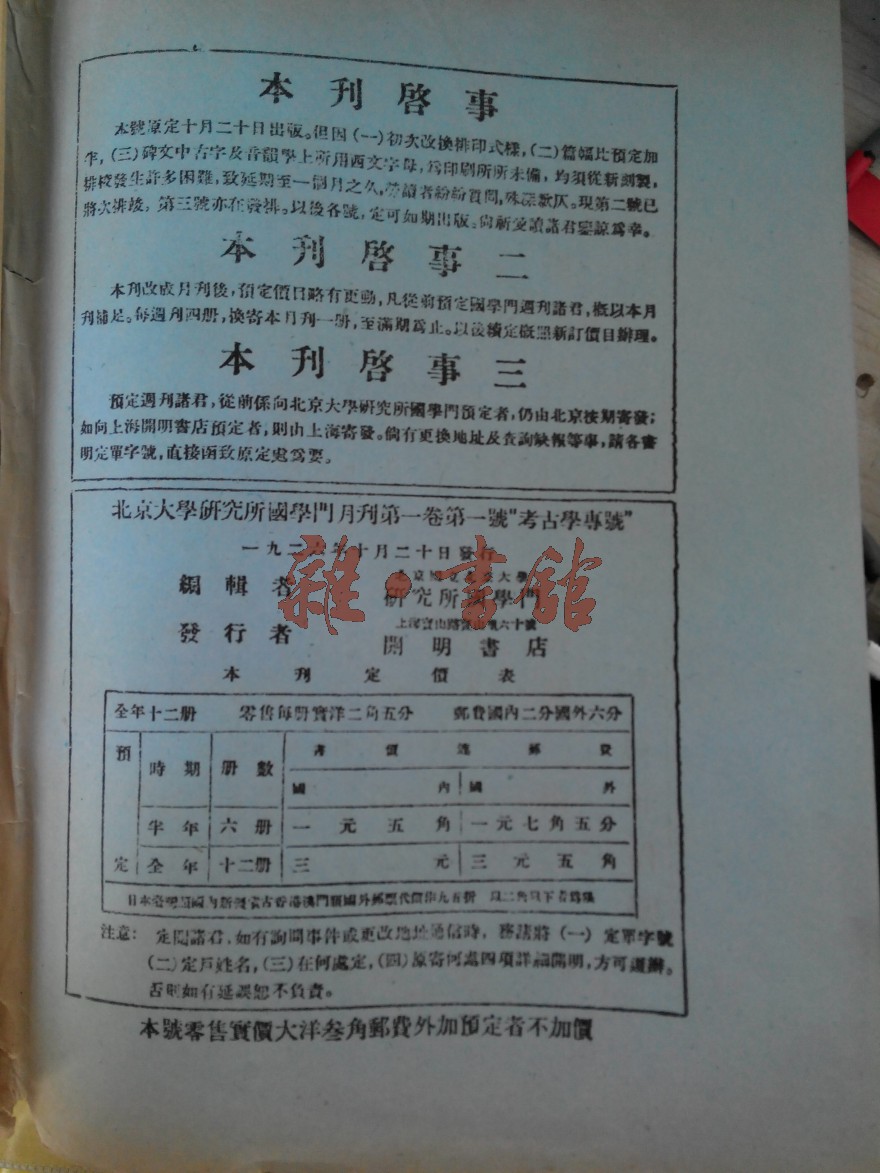 本刊啓事
本號原定十月二十日出版。但因(一)初次改換排印式樣,(二)篇幅比預定加
半,(三)碑文中古字及音韻學上所用西文字母,爲印刷所所未備,均須從新刻製,
排校發生許多困難,致延期至一個月之久,勞讀者紛紛質問,殊深歉仄。現第二號已
將次排竣,第三號亦在發排。以後各號,定可如期出版。尚祈愛讀諸君鑒諒爲幸。
本刊啓事二
本刊改成月刊後,預定價目略有更動,凡從前預定國學門週刊諸君,概以本月
刊補足。每週刊四册,換寄本月刊一册,至滿期爲止。以後續定概照新訂價目辦理。
本刊啓事三
預定週刊諸君,從前係向北京大學研究所國學門預定者,仍由北京按期寄發;
如向上海開明書店預定者,則由上海寄發。倘有更換地址及查詢缺報等事,請各書
明定單字號,直接函致原定處爲要。
北京大學研究所國學門月刊第一卷第一號"考古學專號"
一九二六年十月二十日發行
編輯者 研究所國學門
上海寶山路寶山里六十號
發行者 開明書店
雜·書館
本刊定價表
全年十二册 零售每册實洋二角五分 郵費國內二分國外六分
預定 時期 册數 書價連郵費
國內 國外
半年 六册 一元五角 一元七角五分
全年 十二册 三元 三元五角
注意: 定閱諸君,如有詢問事件或更改地址通信時,務請將(一)定單字號
(二)定戶姓名,(三)在何處定,(四)原寄何處四項詳細開明,方可遵辦。
否則如有延誤恕不負責。
本號零售實價大洋叁角郵費外加預定者不加價